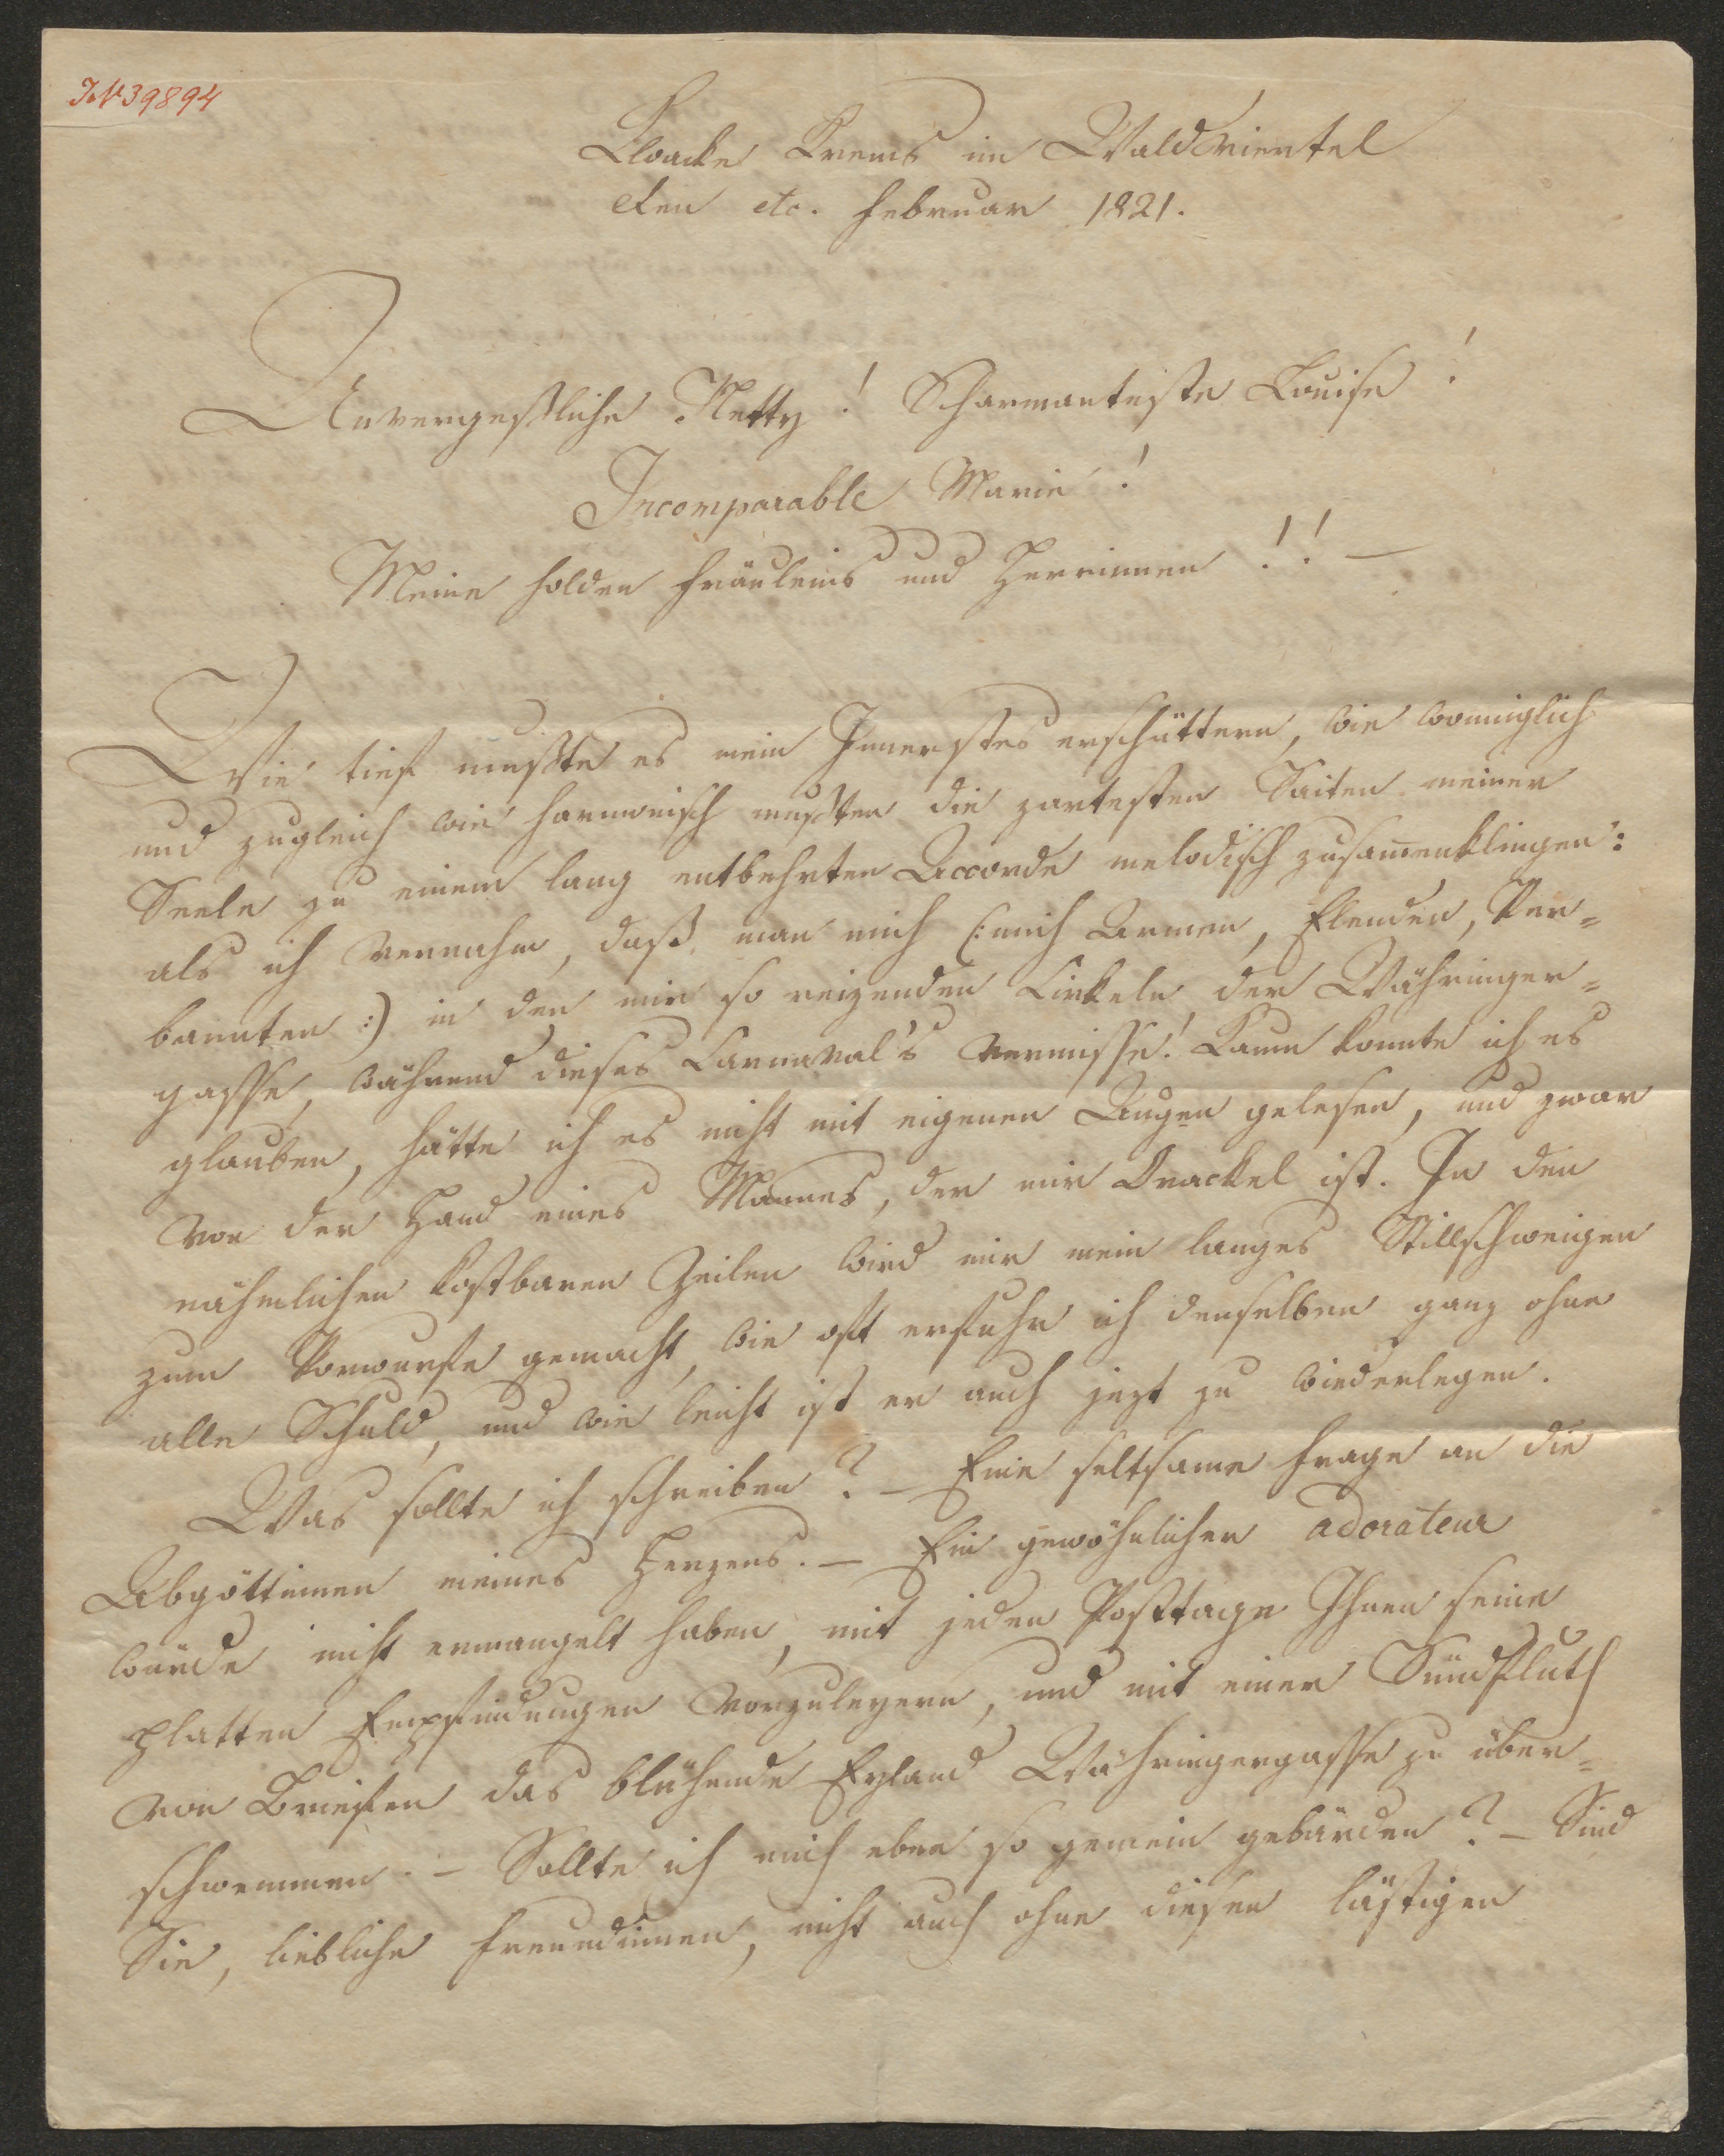 IN 39894
Cloacke Krems im Waldviertel
den etc. Februar 1821.
Unvergeßliche Netty! Scharmanteste Louise!
Incomparable Marie!
Meine holden Fräuleins und Herrinnen!! —
Wie tief mußte es mein Innerstes erschüttern, wie wonniglich
und zugleich wie harmonisch mußten die zartesten Saiten meiner
Seele zu einem lang entbehrten Accorde melodisch zusam̄enklingen:
als ich vernahm, daß man mich (: mich Armen, Elenden, Ver=
bannten :) in den mir so reizenden Cirkeln der Währinger=
gasse, während dieses Carnaval's vermisse! Kaum konnte ich es
glauben, hätte ich es nicht mit eigenen Augen gelesen, und zwar
von der Hand eines Mannes, der mir Orackel ist. In den
nähmlichen kostbaren Zeilen wird mir mein langes Stillschweigen
zum Vorwurfe gemacht, wie oft erfuhr ich denselben ganz ohne
alle Schuld, und wie leicht ist er auch jezt zu wiederlegen.
Was sollte ich schreiben? — Eine seltsame Frage an die
Abgöttinnen meines Herzens. — Ein gewöhnlicher adorateur
würde nicht ermangelt haben, mit jeden Posttage Ihnen seine
platten Empfindungen vorzuleyern, und mit einer Sündfluth
von Briefen das blühende Eyland Währingergasse zu über=
schwemmen. — Sollte ich mich eben so gemein gebärden? — Sind
Sie, liebliche Freundinnen, nicht auch ohne diesen lästigen